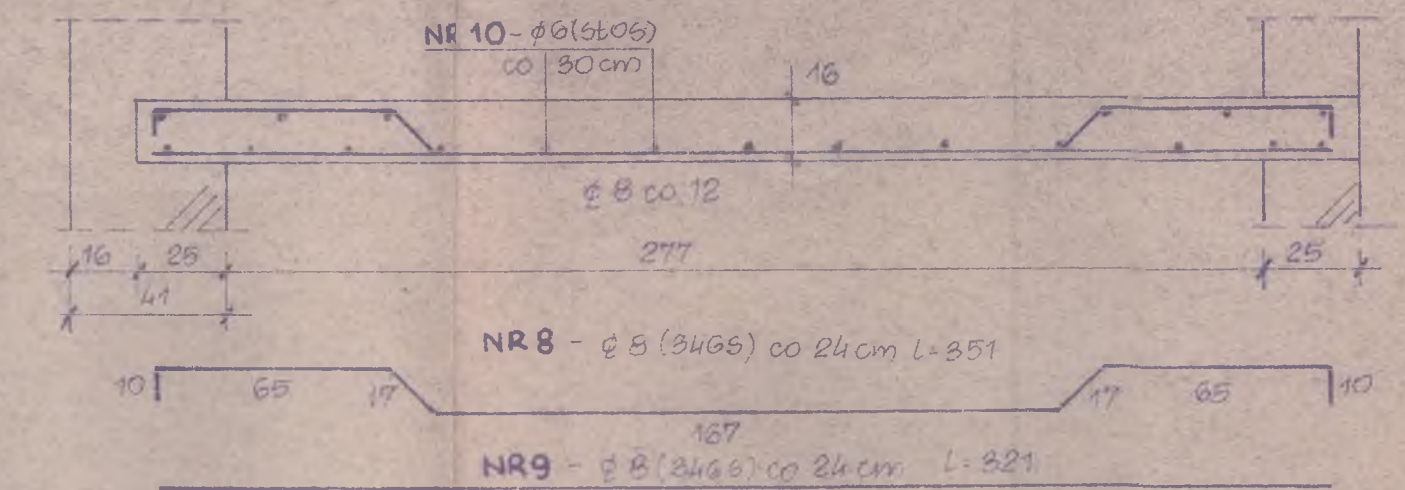 NR 10 - φ6 (St0S)
co 30 cm
16
φ 8 co 12
16 25 277 25
41
NR 8 - φ 8 (34GS) co 24 cm L-351
10 65 17 17 65 10
167
NR 9 - φ 8 (34GS) co 24 cm L-321